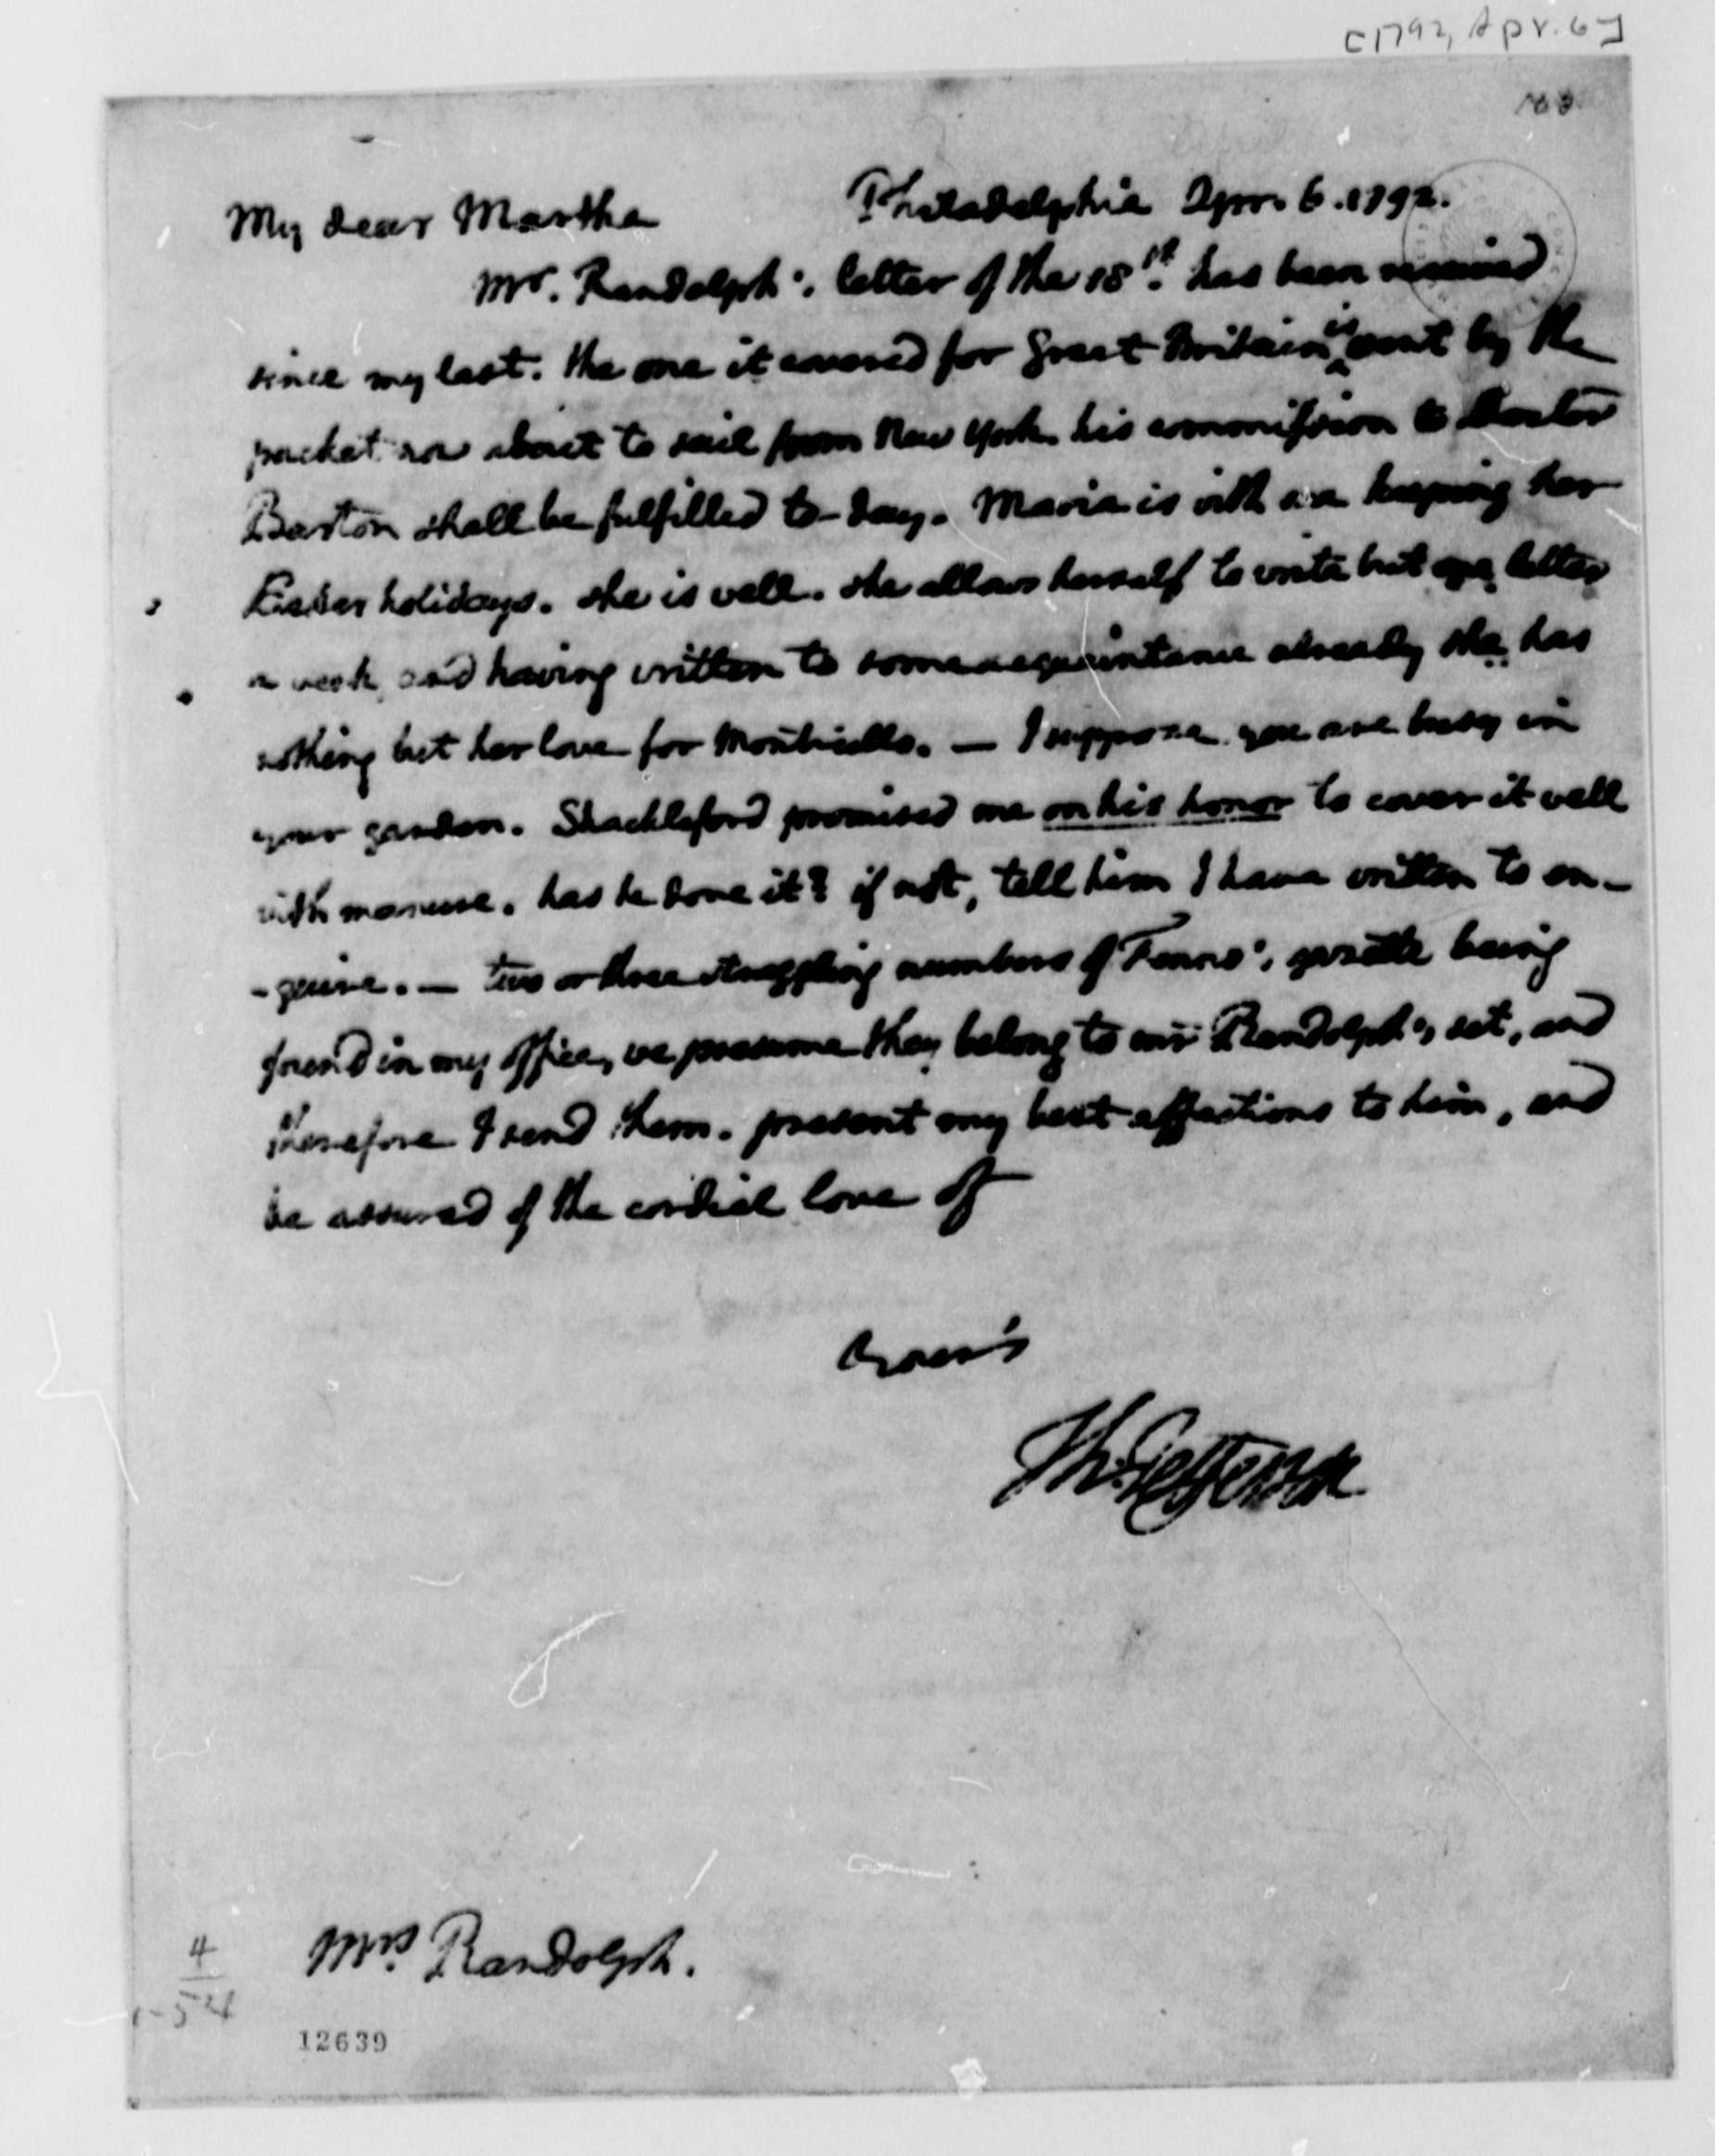 [1792, Apr. 6]
My dear Martha
Philadelphia Apr. 6. 1792.
Mr. Randolph's letter of the 18th. has been received
since my last. the one it covered for Great Britain is sent by the
packet now about to sail from New York. his commission to Doctor
Barton shall be fulfilled to-day. Maria is with me keeping her
Easter holidays. she is well. she allows herself to write but one letter
a week, and having written to some acquaintance already she has
nothing but her love for Monticello. — I suppose you are busy in
your garden. Shackleford promised me on his honor to cover it well
with manure. has he done it? if not, tell him I have written to en-
-quire. — two or three straggling numbers of Fenno's gazette being
found in my office, we presume they belong to mr Randolph's set, and
therefore I send them. present my best affections to him, and
be assured of the cordial love of
Your's
Th: Jefferson
Mrs. Randolph.
4
54
12639